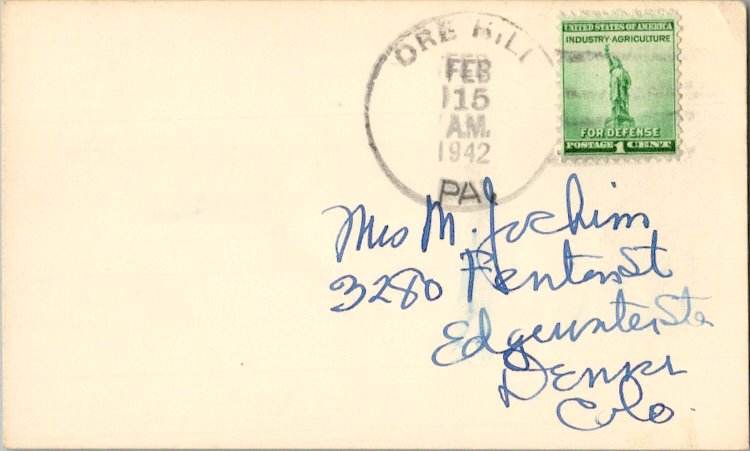 ORE HILL
FEB
15
A.M.
1942
PA.
UNITED STATES OF AMERICA
INDUSTRY·AGRICULTURE
FOR DEFENSE
POSTAGE 1 CENT
Mrs M. Jochim
3280 Fenton St
Edgewater Sta
Denver
Colo.